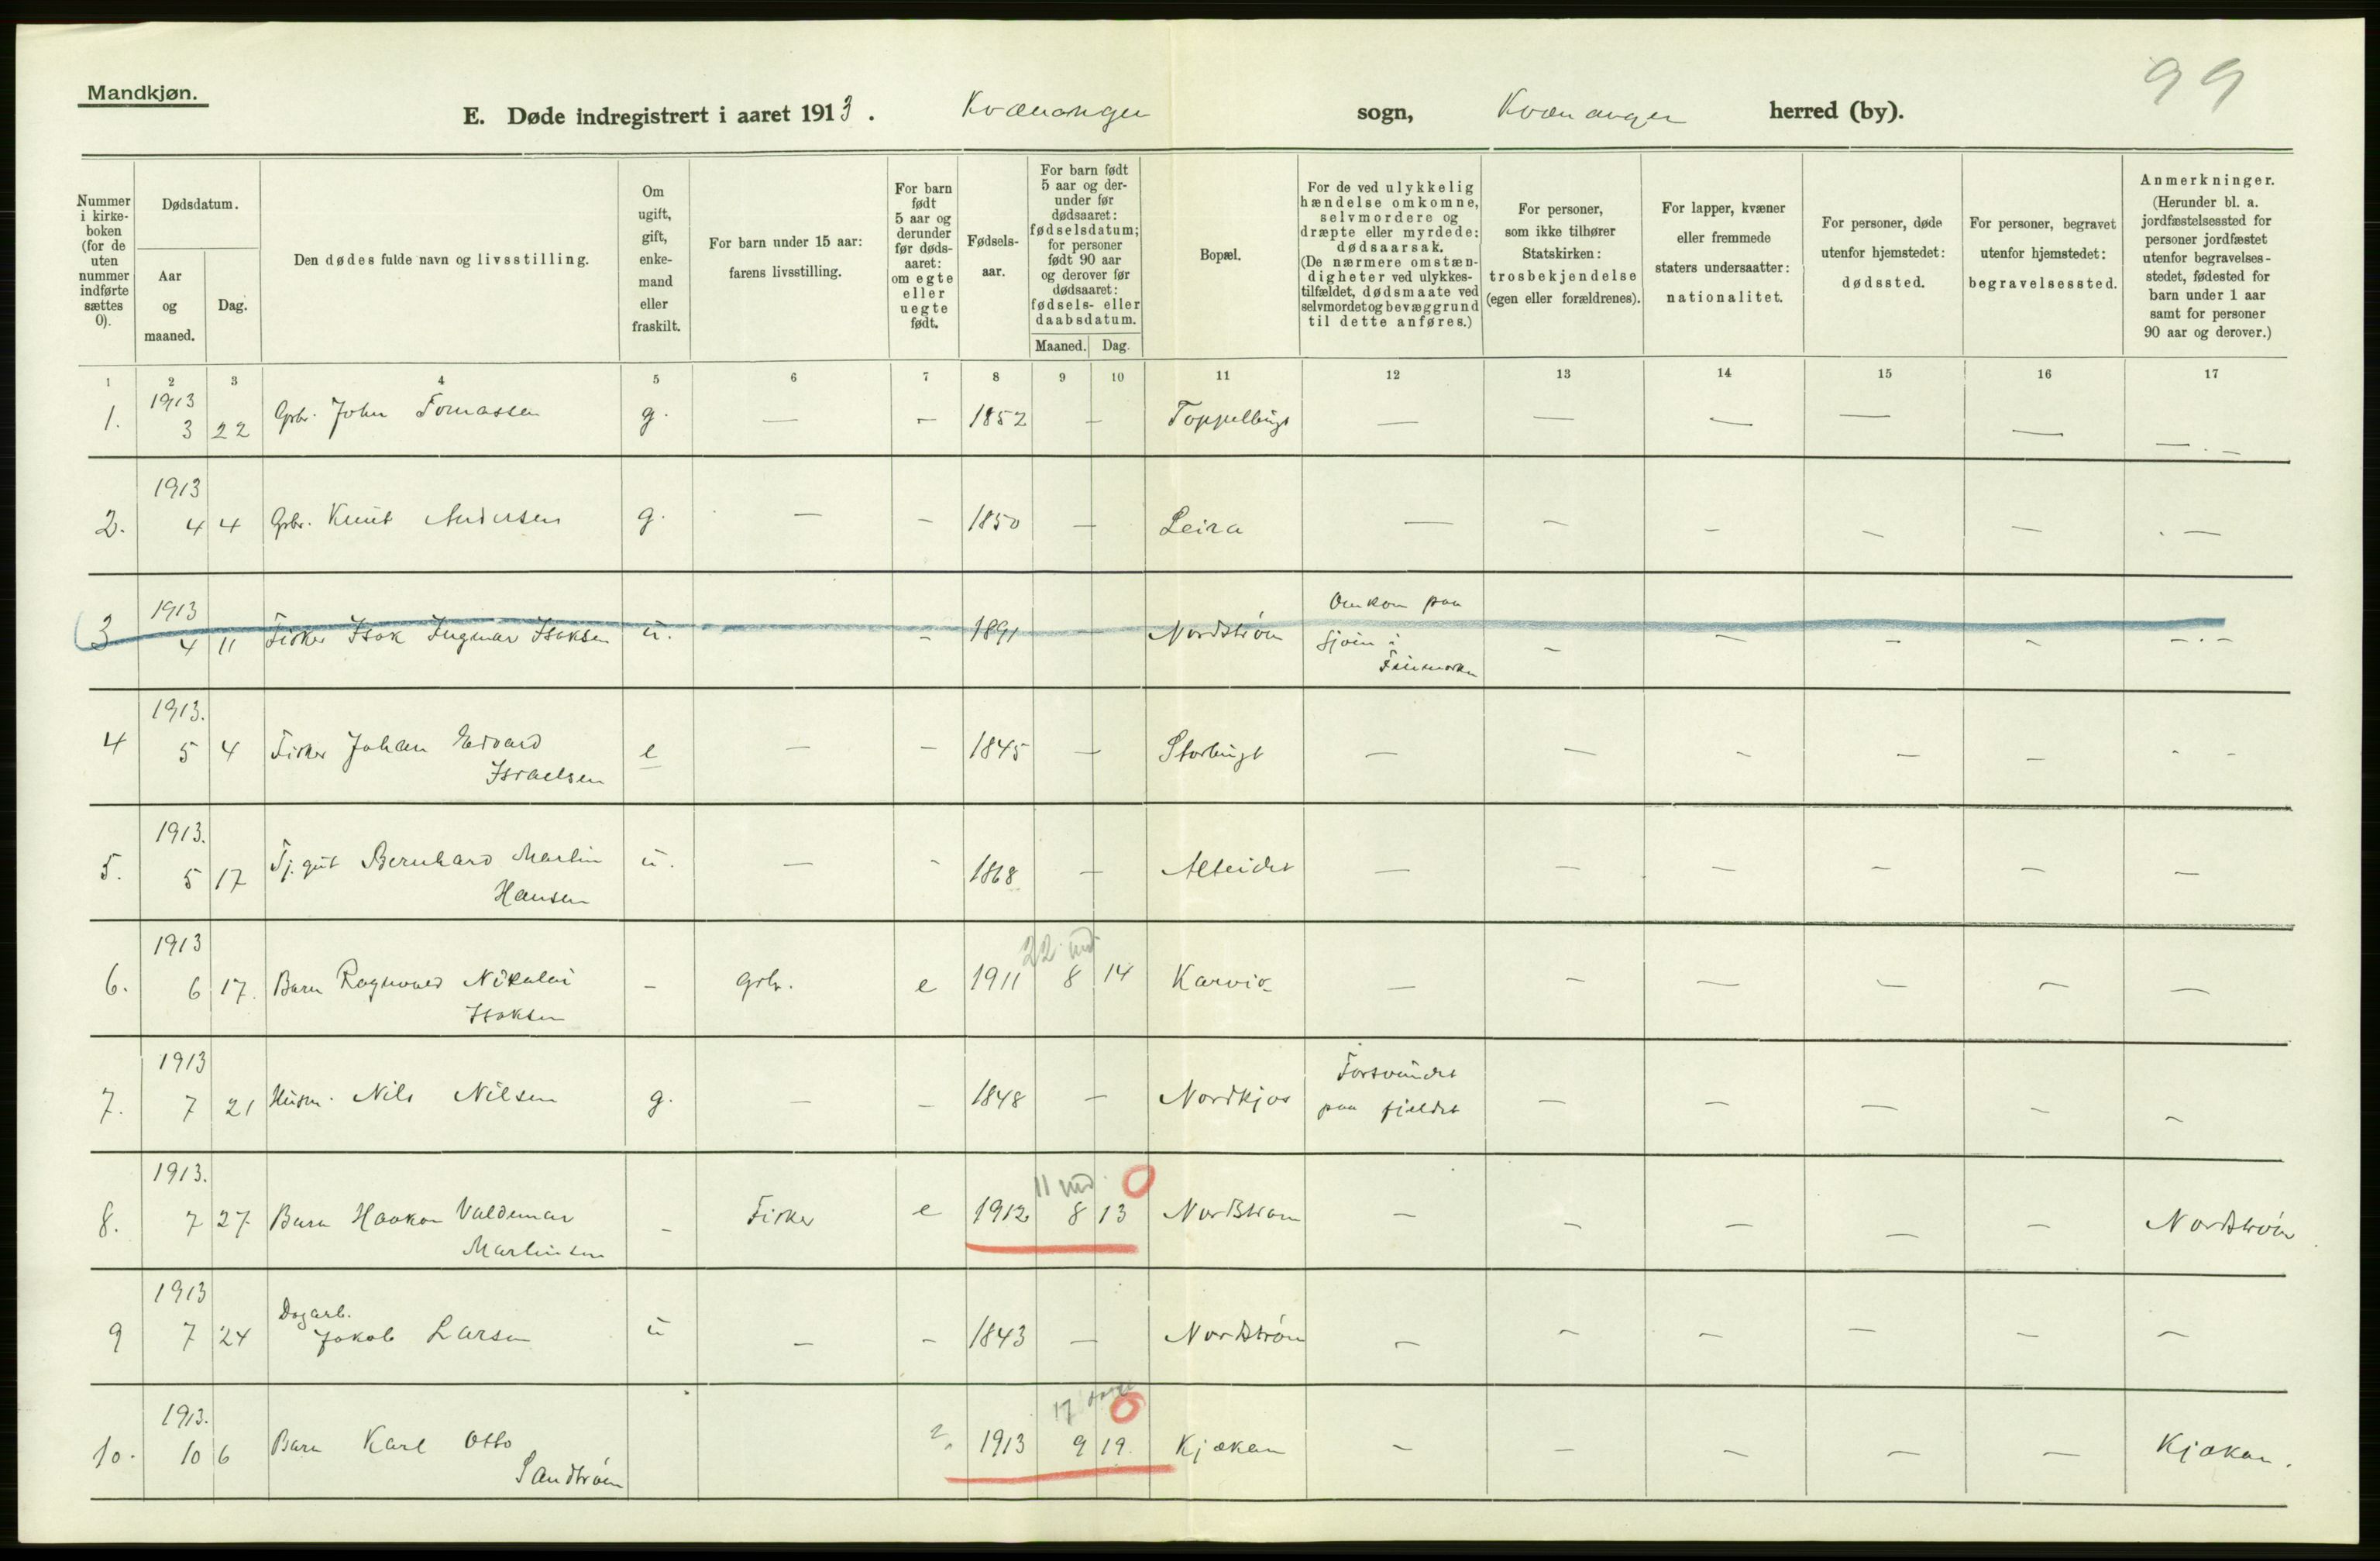 99
Mandkjøn.
E. Døde indregistrert i aaret 1913. Kvænangen sogn, Kvænangen herred (by).
Nummer i kirke- boken (for de uten nummer indførte sættes 0).
Dødsdatum.
Aar og maaned.
Dag.
Den dødes fulde navn og livsstilling.
Om ugift, gift, enke- mand eller fraskilt.
For barn under 15 aar: farens livsstilling.
For barn født 5 aar og derunder før døds- aaret: om egte eller uegte født.
Fødsels- aar.
For barn født 5 aar og der- under før dødsaaret: fødselsdatum; for personer født 90 aar og derover før dødsaaret: fødsels- eller daabsdatum.
Maaned. Dag.
Bopæl.
For de ved ulykkelig hændelse omkomne, selvmordere og dræpte eller myrdede: dødsaarsak. (De nærmere omstæn- digheter ved ulykkes- tilfældet, dødsmaate ved selvmordet og bevæggrund til dette anføres.)
For personer, som ikke tilhører Statskirken: trosbekjendelse (egen eller forældrenes).
For lapper, kvæner eller fremmede staters undersaatter: nationalitet.
For personer, døde utenfor hjemstedet: dødssted.
For personer, begravet utenfor hjemstedet: begravelsessted.
Anmerkninger. (Herunder bl. a. jordfæstelsessted for personer jordfæstet utenfor begravelses- stedet, fødested for barn under 1 aar samt for personer 90 aar og derover.)
1 2 3 4 5 6 7 8 9 10 11 12 13 14 15 16 17
1913
1. 3 22 Grbr. John Tomassen g. — — 1852 — Toppelbugt — — — — — — . —
1913
2. 4 4 Grbr. Knut Andersen g. — — 1850 — Leira — — — — — . —
1913 Omkom paa
3 4 11 Fisker Isak Ingmar Isaksen u. — 1891 Nordstrøm Sjøen i — — — — — . —
Finmarken
1913.
4 5 4 Fisker Johan Edvard e — — 1845 — Storbugt — — — — — - -
Israelsen
1913.
5. 5 17 Tj.gut Bernhard Martin u. — - 1868 — Alteidet — — — — — —
Hansen
1913 22 md
6. 6 17. Barn Ragnvald Nikolai — grbr. e 1911 8 14 Karvik — — — — — —
Isaksen
1913 Forsvundet
7. 7 21 Husm. Nils Nilsen g. — — 1848 — Nordkjos paa fjeldet — — — — —
1913. 11 md. 0
8. 7 27 Barn Haakon Valdemar — Fisker e 1912 8 13 Nordstrøm — — — — — Nordstrøm
Martinsen
1913
Dagarb.
9 7 24 Jakob Larsen u — — 1843 — Nordstrøm — — — — — —
1913. 17 dage 0
10. 10 6 Barn Karl Otto 1913 9 19. Kjækan — — — — — Kjækan.
Sandstrøm